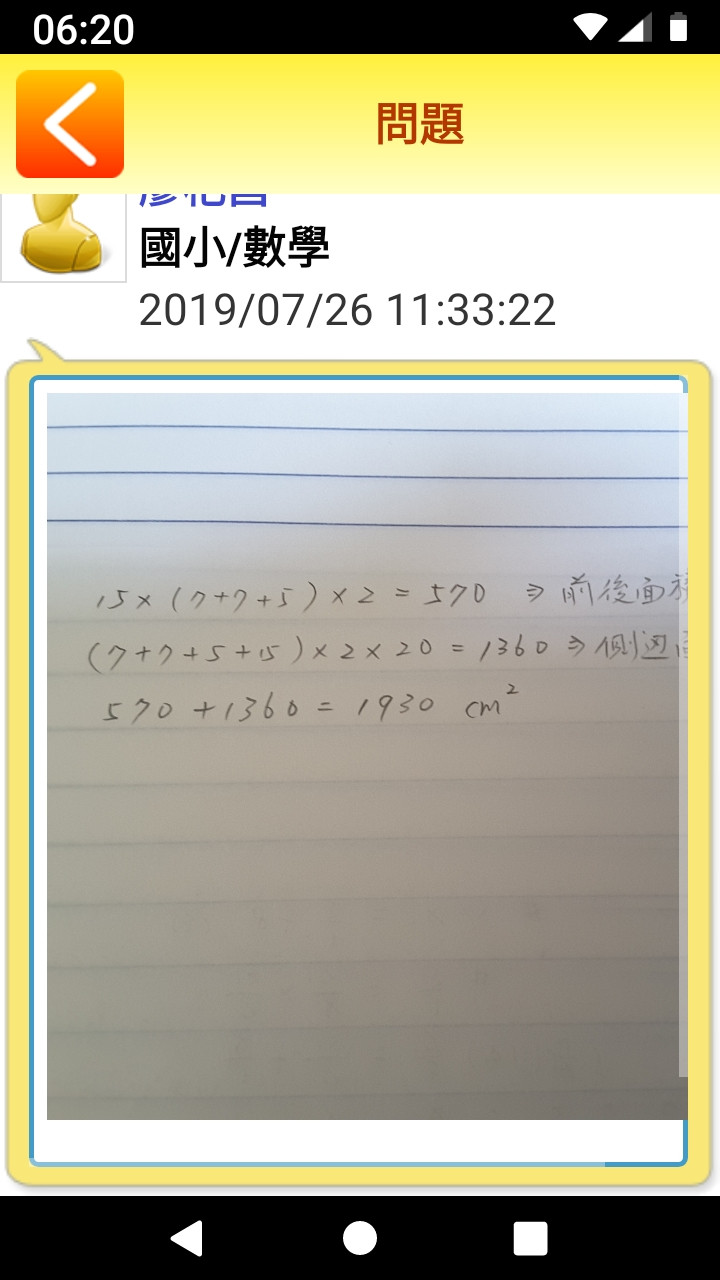 06:20
問題
國小/數學
2019/07/26 11:33:22
15×(7+7+5)×2=570 ⇒前後面積
(7+7+5+15)×2×20=1360⇒側邊
570+1360=1930 cm²